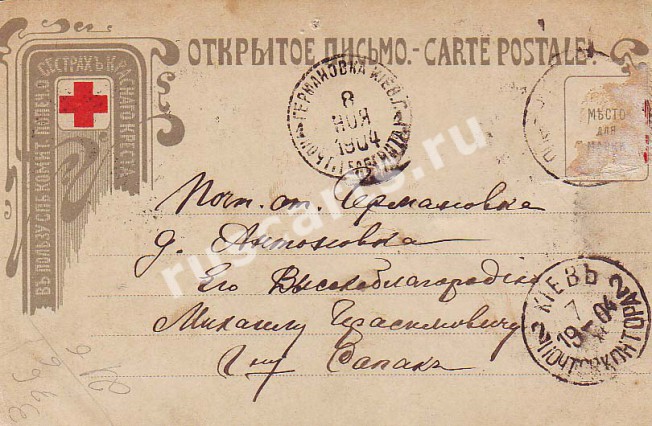 ОТКРЫТОЕ ПИСЬМО.-CARTE POSTALE.
ВЪ ПОЛЬЗУ СПБ. КОМИТ. ПОПЕЧ. О СЕСТРАХЪ КРАСНАГО КРЕСТА
ГЕРМАНОВКА КІЕВ. Г.
8
НОЯ
1904
МѢСТО
для
МАРКИ
Почт. от. Германовка
д. Антоновка
Его Высокоблагородію
Михаилу Герасимовичу
Г-ну
КІЕВЪ
7
19 04
2
ruscards.ru